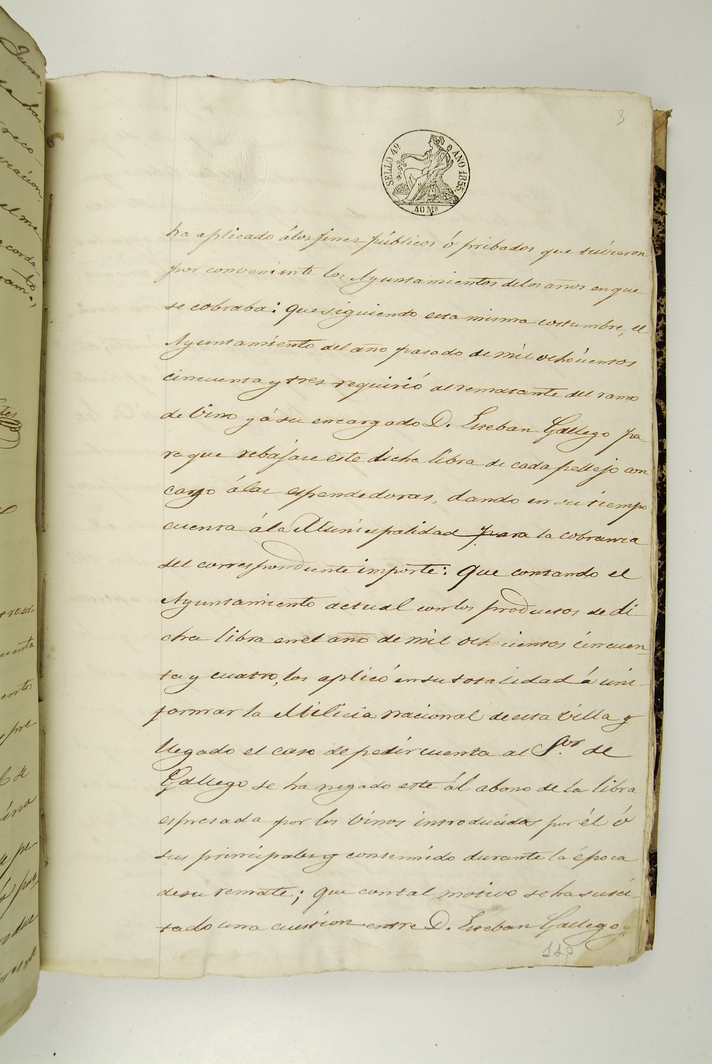 3
SELLO 4º AÑO 1855.
40 Ms
ha aplicado á los fines públicos ó pribados, que tubieron
por conveniente los Ayuntamientos de los años en que
se cobraba: que siguiendo esta misma costumbre, el
Ayuntamiento del año pasado de mil ochocientos
cincuenta y tres requirió al rematante del ramo
de Vino y á su encargado D. Esteban Gallego pa
ra que rebajase este dicha libra de cada pellejo con
cargo á las espendedoras, dando en su tiempo
cuenta á la Municipalidad para la cobranza
del correspondiente importe: Que contando el
Ayuntamiento actual con los productos de di
cha libra en el año de mil ochocientos cincuen
ta y cuatro, los aplicó en su totalidad á uni
formar la Milicia nacional de esta Villa y
llegado el caso de pedir cuenta al Sor. de
Gallego se ha negado este ál abono de la libra
espresada por los vinos introducidos por él ó
sus principales y consumido durante la época
de su remate; que con tal motivo se ha susci-
tado una cuestion entre D. Esteban Gallego